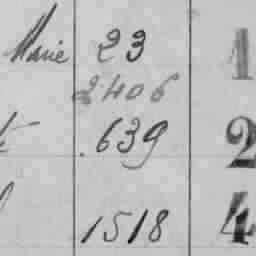 Marie 23 1
2406
639 2
1518 4